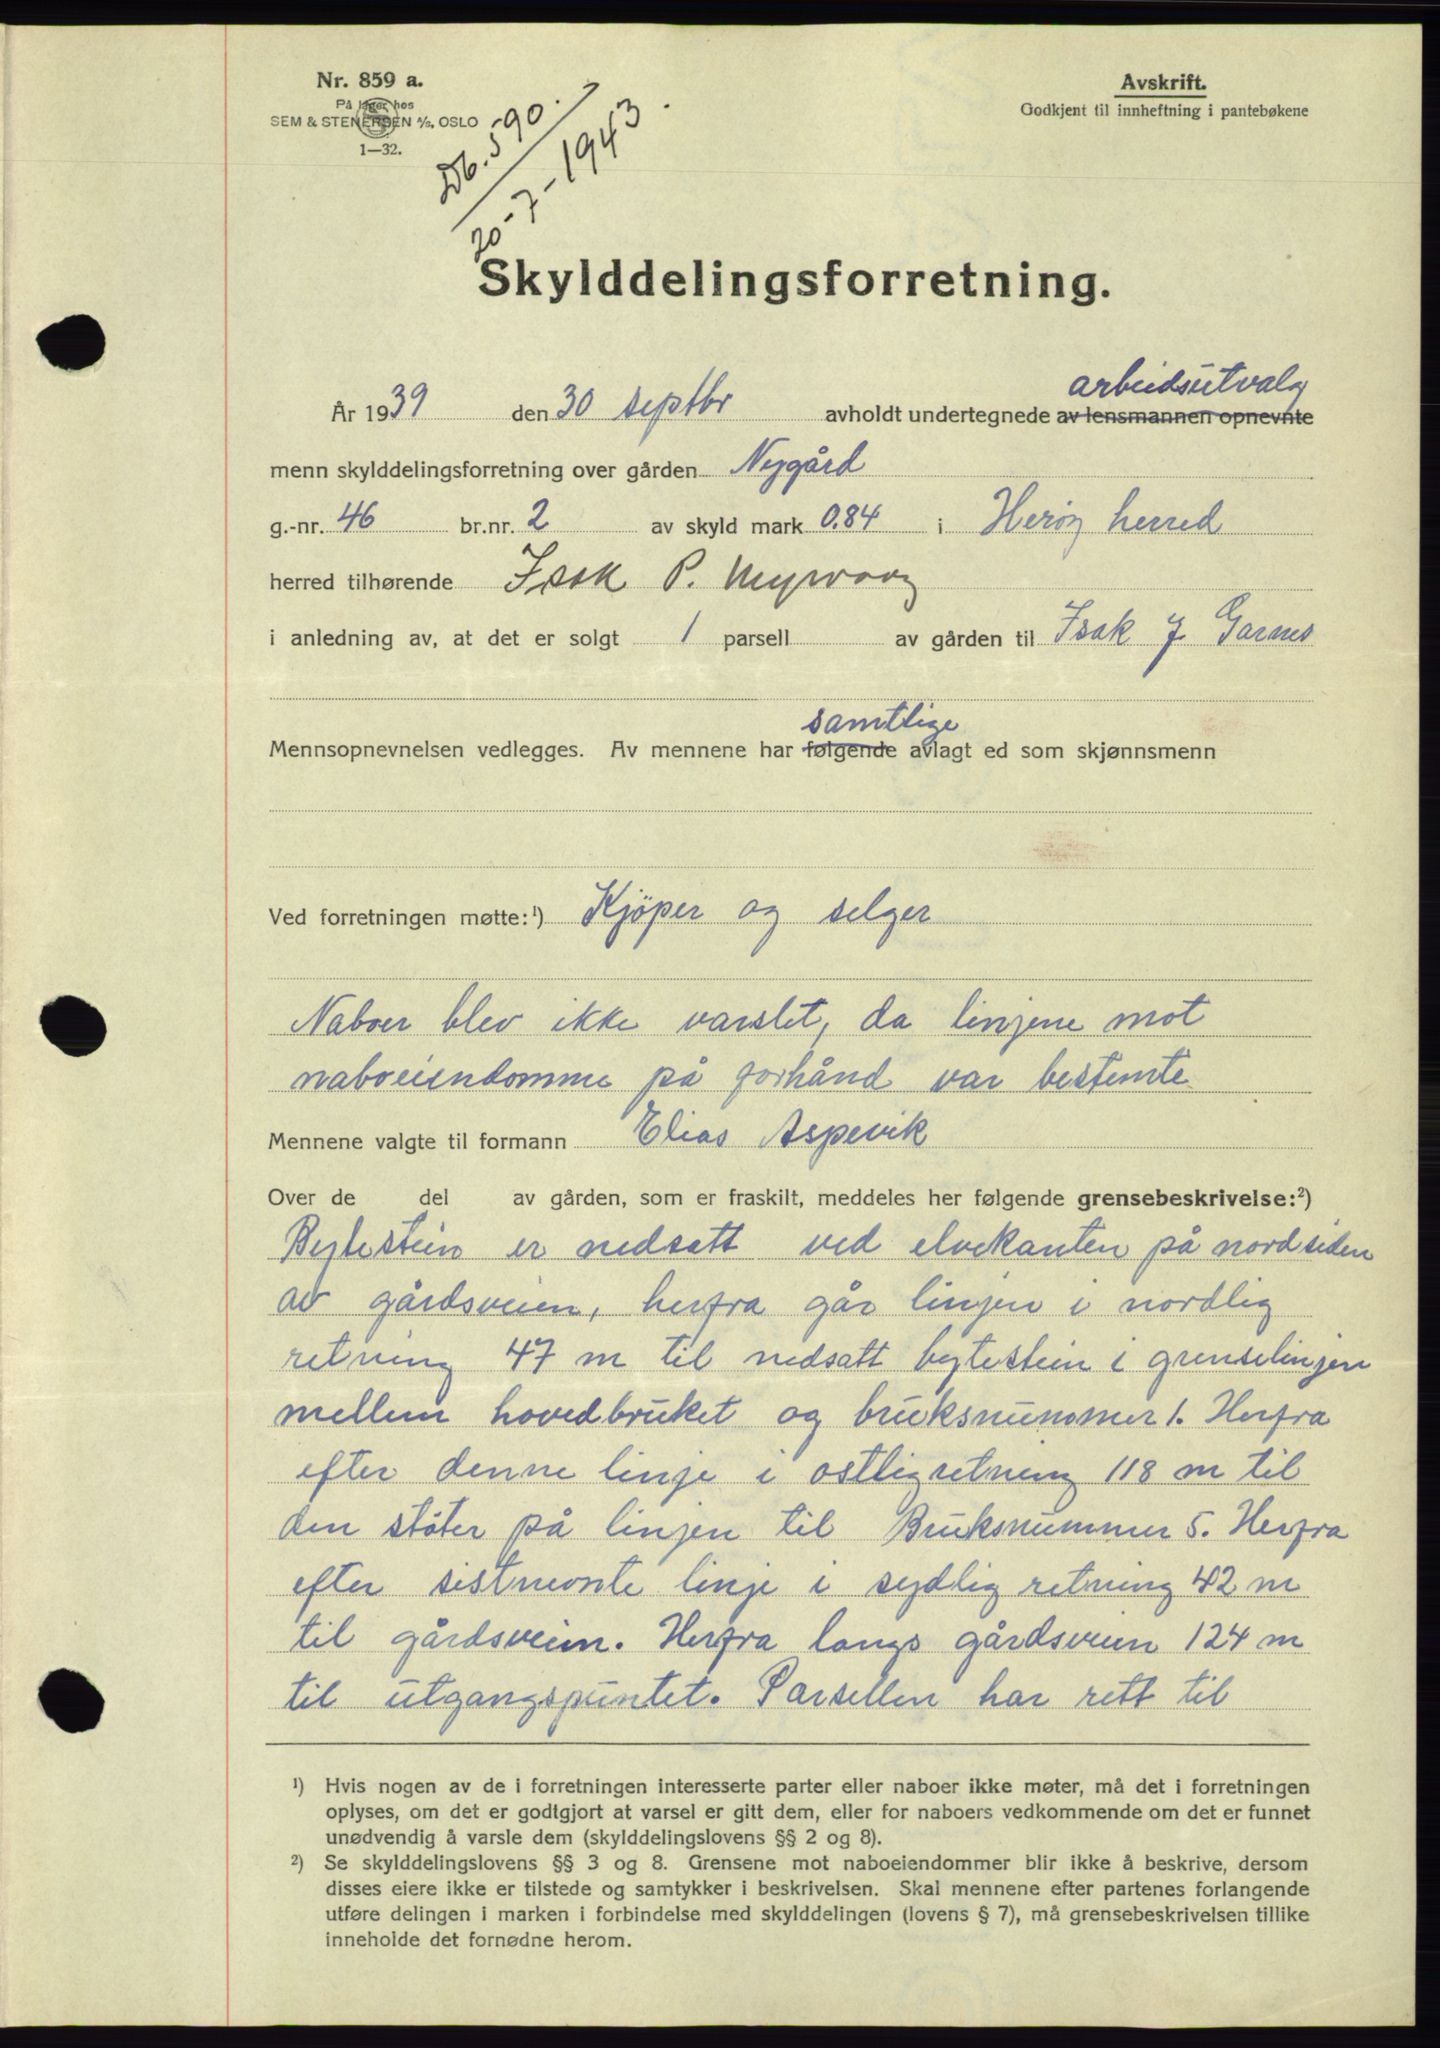 Nr. 859 a.
På lager hos
SEM & STENERSEN A/S, OSLO
1—32.
Db. 590.
20-7-1943.
Avskrift.
Godkjent til innheftning i pantebøkene
Skylddelingsforretning.
arbeidsutvalg
År 1939 den 30 septbr avholdt undertegnede av lensmannen opnevnte
menn skylddelingsforretning over gården Nygård
g.-nr. 46 br.nr. 2 av skyld mark 0.84 i Herøy herred
herred tilhørende Isak P. Myrvaag
i anledning av, at det er solgt 1 parsell av gården til Isak J Garnes
samtlige
Mennsopnevnelsen vedlegges. Av mennene har følgende avlagt ed som skjønnsmenn
Ved forretningen møtte:¹) Kjöper og selger
Naboer blev ikke varslet, da linjene mot
naboeiendomme på forhånd var bestemte
Mennene valgte til formann Elias Aspevik
Over de del av gården, som er fraskilt, meddeles her følgende grensebeskrivelse:²)
Bytestein er nedsatt ved elvekanten på nordsiden
av gårdsveien, herfra går linjen i nordlig
retning 47 m til nedsatt bytestein i grenselinjen
mellem hovedbruket og bruksnummer 1. Herfra
efter denne linje i ostlig retning 118 m til
den stöter på linjen til Bruksnummer 5. Herfra
efter sistnevnte linje i sydlig retning 42 m
til gårdsveien. Herfra langs gårdsveien 124 m
til utgangspuntet. Parsellen har rett til
¹) Hvis nogen av de i forretningen interesserte parter eller naboer ikke møter, må det i forretningen
oplyses, om det er godtgjort at varsel er gitt dem, eller for naboers vedkommende om det er funnet
unødvendig å varsle dem (skylddelingslovens §§ 2 og 8).
²) Se skylddelingslovens §§ 3 og 8. Grensene mot naboeiendommer blir ikke å beskrive, dersom
disses eiere ikke er tilstede og samtykker i beskrivelsen. Skal mennene efter partenes forlangende
utføre delingen i marken i forbindelse med skylddelingen (lovens § 7), må grensebeskrivelsen tillike
inneholde det fornødne herom.